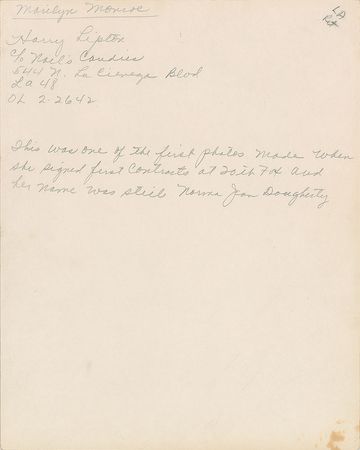 Marilyn Monroe
Harry Lipton
c/o Noil's Candies
544 N. La Cienega Blvd
LA 48
OL 2-2642
This was one of the first photos made when
she signed first contracts at 20th Fox and
her name was still Norma Jean Dougherty